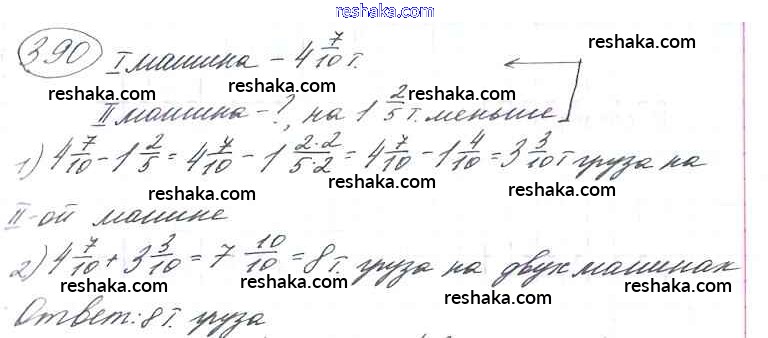 reshaka.com
390 I машина – 4 7/10 т.
reshaka.com reshaka.com
reshaka.com reshaka.com
II машина – ?, на 1 2/5 т. меньше
reshaka.com reshaka.com
1) 4 7/10 – 1 2/5 = 4 7/10 – 1 2·2/5·2 = 4 7/10 – 1 4/10 = 3 3/10 т груза на
reshaka.com reshaka.com
II-ой машине
reshaka.com reshaka.com
2) 4 7/10 + 3 3/10 = 7 10/10 = 8 т. груза на двух машинах
reshaka.com reshaka.com
Ответ: 8 т. груза